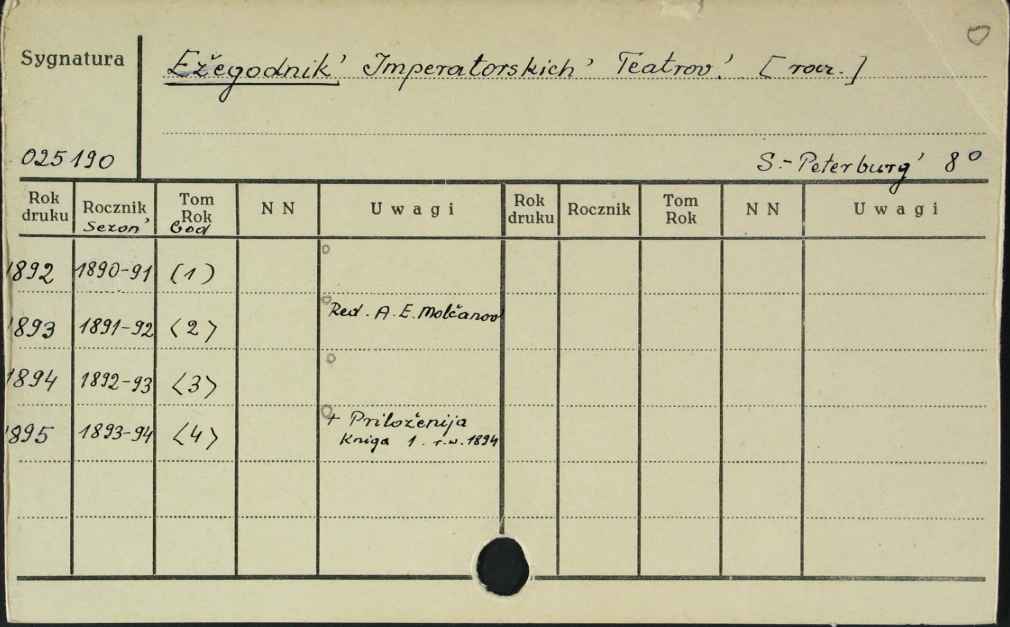 Sygnatura
Ežegodnik' Imperatorskich' Teatrov'. [rocz.]
025190
S.-Peterburg' 8°
Rok druku Rocznik Tom Rok NN Uwagi Rok druku Rocznik Tom Rok NN Uwagi
Sezon' God
1892 1890-91 (1)
1893 1891-92 <2> Red. A. E. Molčanov
1894 1892-93 <3>
1895 1893-94 <4> + Priloženija
Kniga 1. r.w. 1894